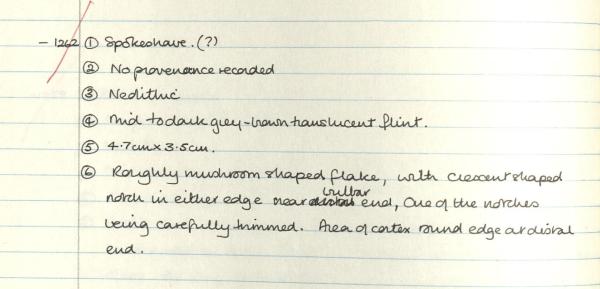 - 1262 ① Spokeshave. (?)
② No provenance recorded
③ Neolithic
④ Mid to dark grey-brown translucent flint.
⑤ 4.7cm x 3.5cm.
⑥ Roughly mushroom shaped flake, with crescent shaped
notch in either edge near distal bulbar end, One of the notches
being carefully trimmed. Area of cortex round edge at distal
end.